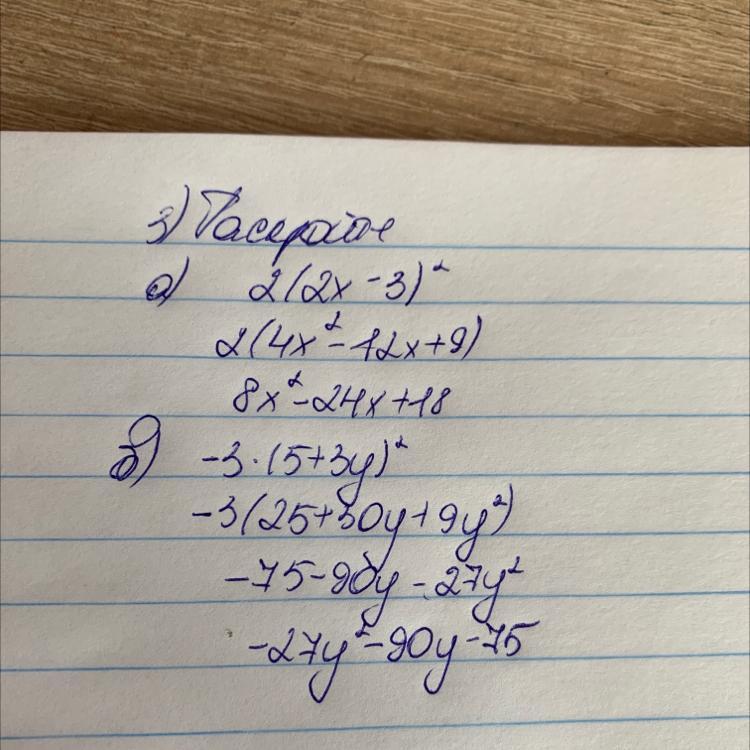 3) Раскройте
а) 2(2x-3)²
2(4x²-12x+9)
8x²-24x+18
б) -3·(5+3y)²
-3(25+30y+9y²)
-75-90y-27y²
-27y²-90y-75